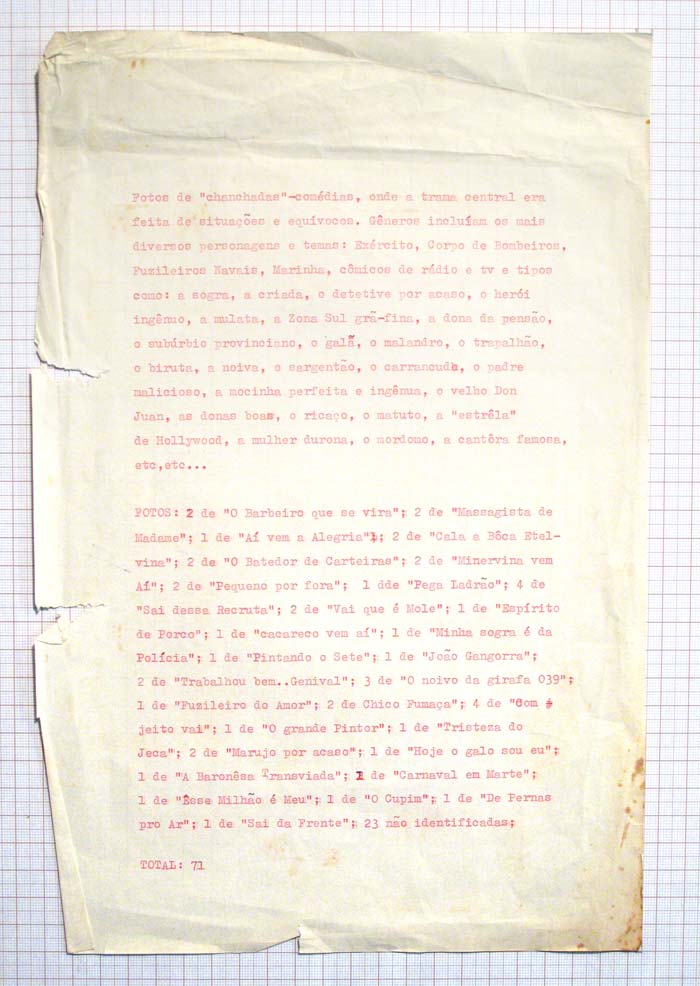 Fotos de "chanchadas"-comédias, onde a trama central era
feita de situações e equívocos. Gêneros incluíam os mais
diversos personagens e temas: Exército, Corpo de Bombeiros,
Fuzileiros Navais, Marinha, cômicos de rádio e tv e tipos
como: a sogra, a criada, o detetive por acaso, o herói
ingênuo, a mulata, a Zona Sul grã-fina, a dona da pensão,
o subúrbio provinciano, o galã, o malandro, o trapalhão,
o biruta, a noiva, o sargentão, o carrancudo, o padre
malicioso, a mocinha perfeita e ingênua, o velho Don
Juan, as donas boas, o ricaço, o matuto, a "estrêla"
de Hollywood, a mulher durona, o mordomo, a cantôra famosa,
etc,etc...
FOTOS: 2 de "O Barbeiro que se vira"; 2 de "Massagista de
Madame"; 1 de "Aí vem a Alegria"; 2 de "Cala a Bôca Etel-
vina"; 2 de "O Batedor de Carteiras"; 2 de "Minervina vem
Aí"; 2 de "Pequeno por fora"; 1 dde "Pega Ladrão"; 4 de
"Sai dessa Recruta"; 2 de "Vai que é Mole"; 1 de "Espírito
de Porco"; 1 de "cacareco vem aí"; 1 de "Minha sogra é da
Polícia"; 1 de "Pintando o Sete"; 1 de "João Gangorra";
2 de "Trabalhou bem..Genival"; 3 de "O noivo da girafa 039";
1 de "Fuzileiro do Amor"; 2 de Chico Fumaça"; 4 de "Com
jeito vai"; 1 de "O grande Pintor"; 1 de "Tristeza do
Jeca"; 2 de "Marujo por acaso"; 1 de "Hoje o galo sou eu";
1 de "A Baronêsa Transviada"; 1 de "Carnaval em Marte";
1 de "Êsse Milhão é Meu"; 1 de "O Cupim"; 1 de "De Pernas
pro Ar"; 1 de "Sai da Frente"; 23 não identificadas;
TOTAL: 71